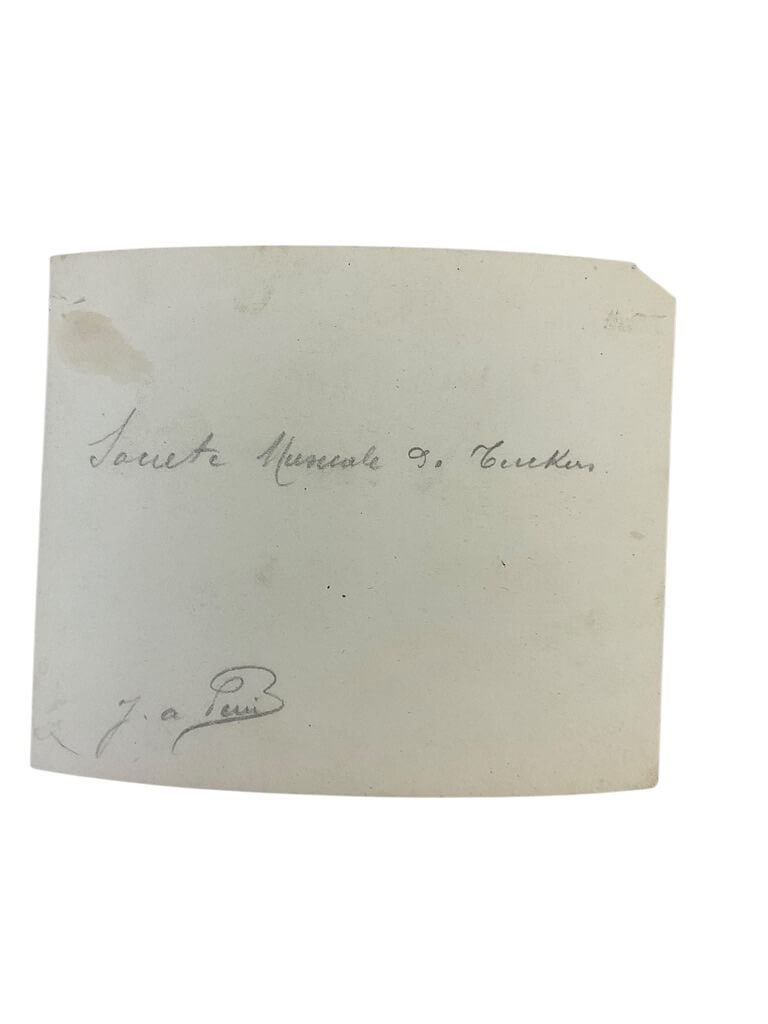 Societe Musicale de Tuckers
J. a Perrin